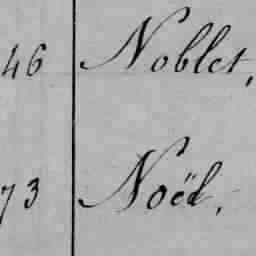 46 Noblet,
73 Noël,